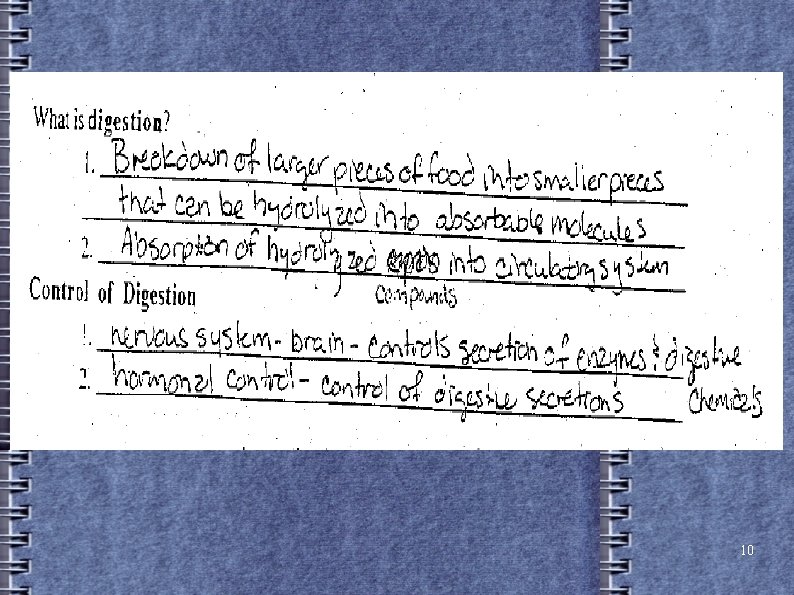 What is digestion?
1. Breakdown of larger pieces of food into smaller pieces
that can be hydrolyzed into absorbable molecules
2. Absorption of hydrolyzed into circulatory system
compounds
Control of Digestion
1. nervous system - brain - controls secretion of enzymes & digestive
chemicals
2. hormonal control - control of digestive secretions
10